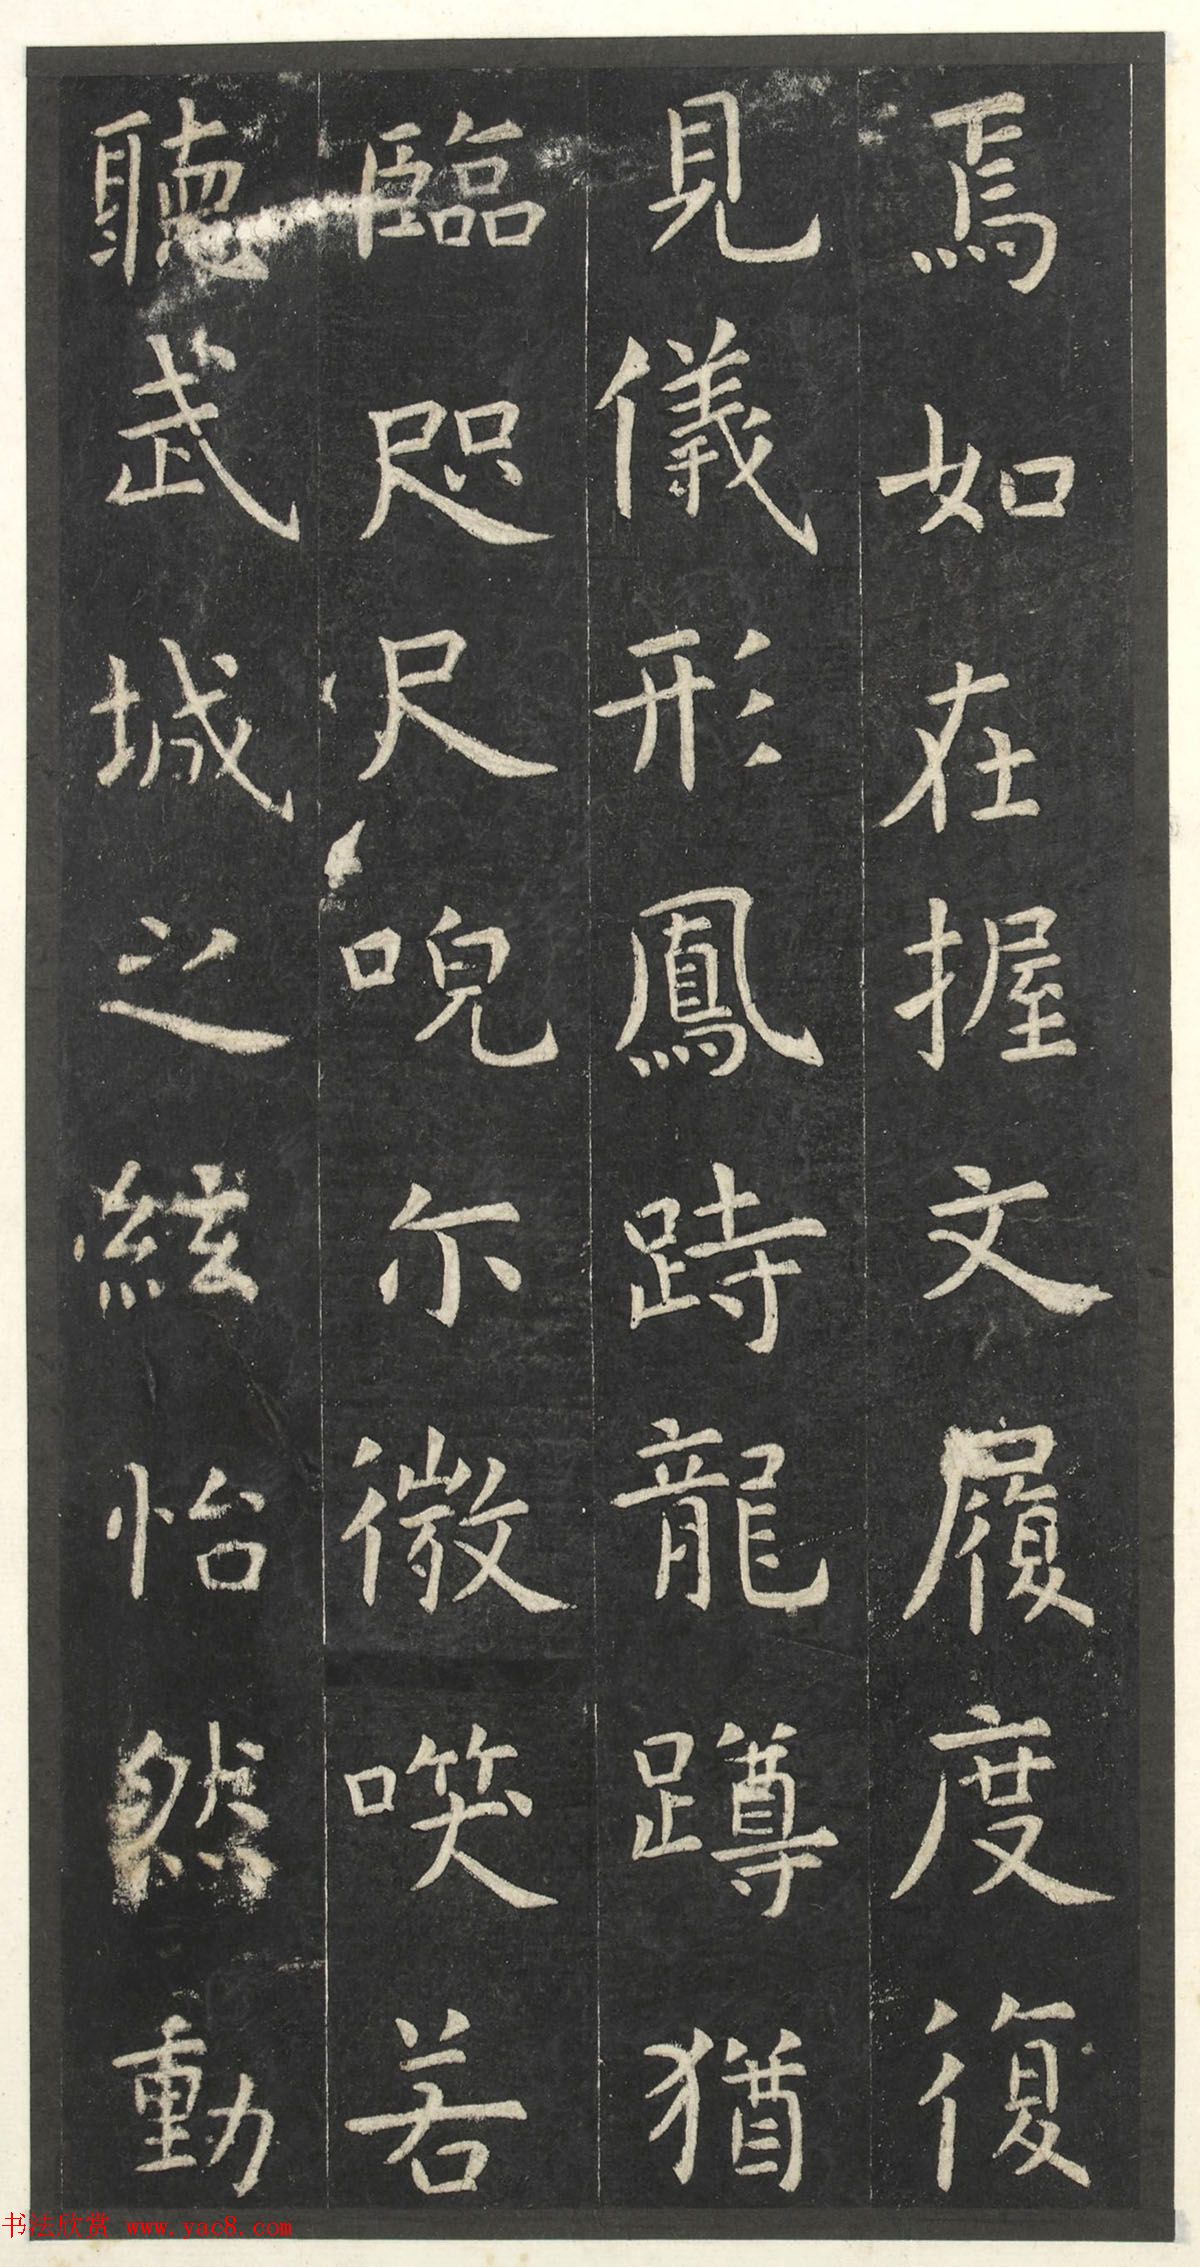 焉如在握文履度復
見儀形鳳跱龍蹲猶
臨咫尺唲尓微㗛若
聽武城之絃怡然動
书法欣赏 www.yac8.com